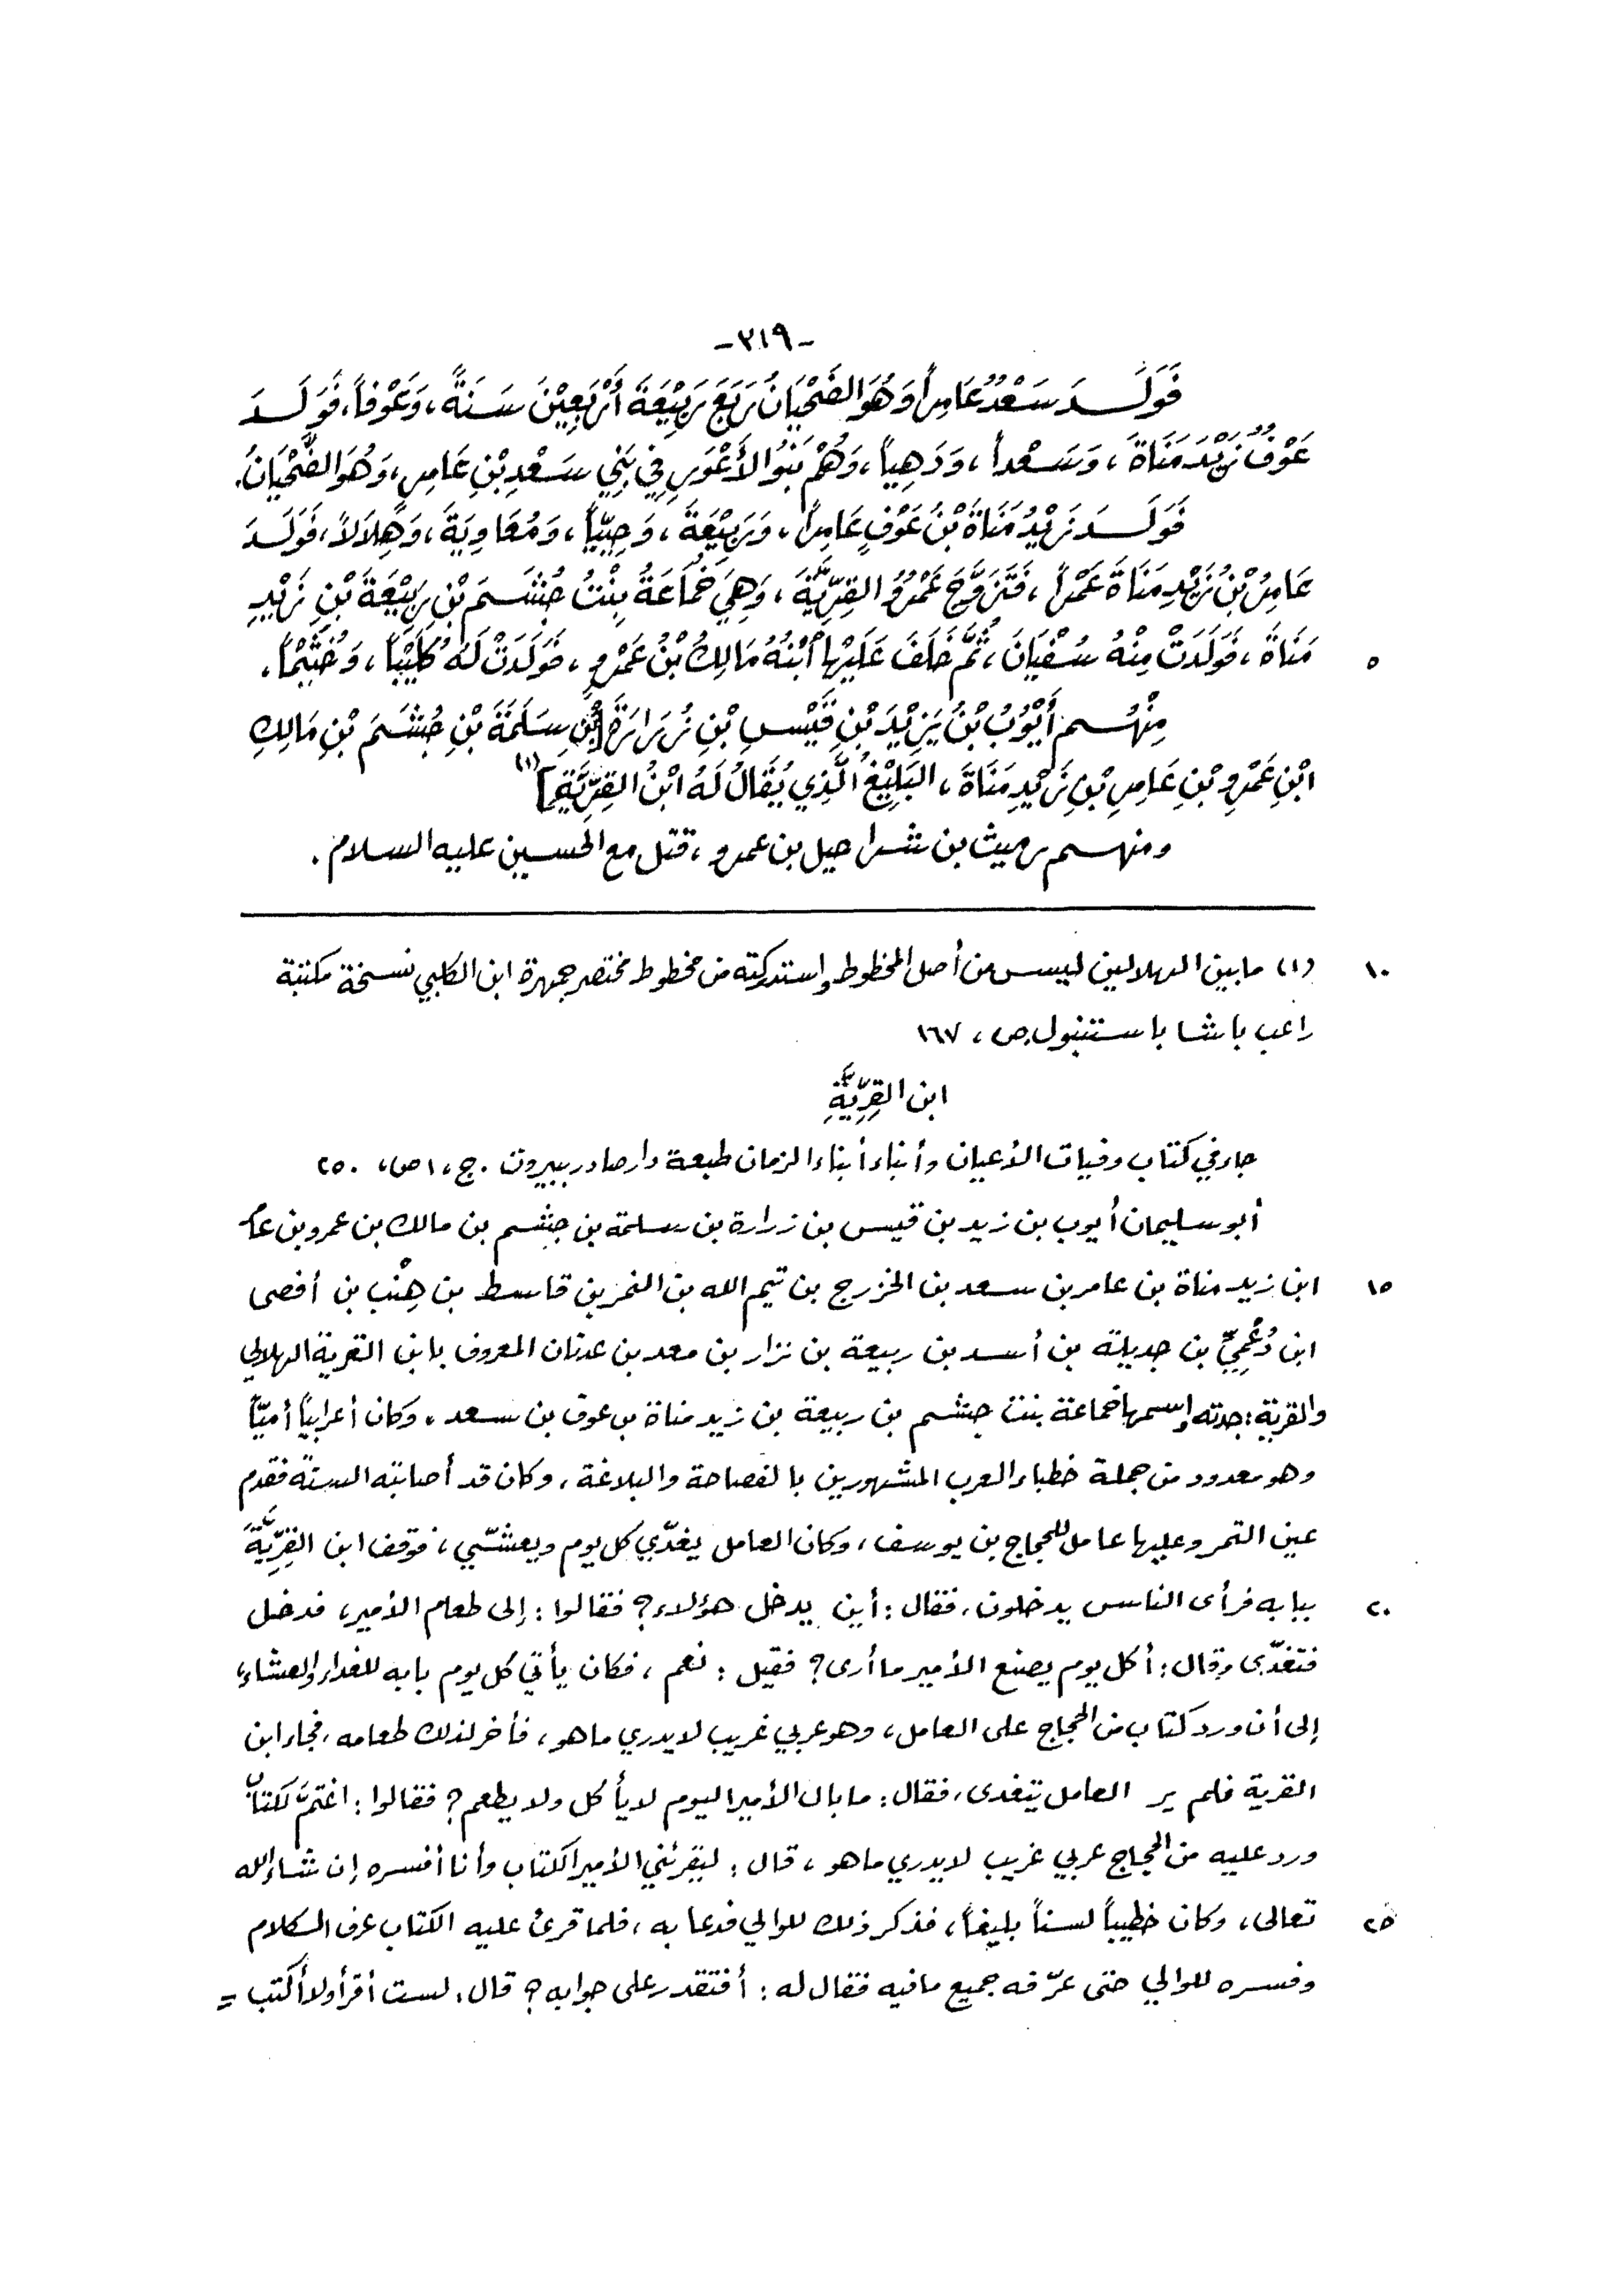 -٣١٩-
فَوَلَدَ سَعْدٌ عَامِراً وَهُوَ الضَّحْيَانُ رَبَعَ رَبِيْعَةَ أَرْبَعِيْنَ سَنَةً، وَعَوْفاً، فَوَلَدَ
عَوْفٌ زَيْدَ مَنَاةَ، وَسَعْداً، وَدَهِيّاً، وَهُمْ بَنُو الأَعْوَرِ فِي بَنِي سَعْدِ بْنِ عَامِرٍ، وَهُوَ الضَّحْيَانُ.
فَوَلَدَ زَيْدُ مَنَاةَ بْنُ عَوْفٍ عَامِراً، وَرَبِيْعَةَ، وَحِيَيّاً، وَمُعَاوِيَةَ، وَهِلَالاً، فَوَلَدَ
عَامِرُ بْنُ زَيْدِ مَنَاةَ عَمْراً، فَتَزَوَّجَ عَمْرٌو القِرِّيَّةَ، وَهِيَ خُمَاعَةُ بِنْتُ جُشَمَ بْنِ رَبِيْعَةَ بْنِ زَيْدِ
مَنَاةَ، فَوَلَدَتْ مِنْهُ سُفْيَانَ، ثُمَّ خَلَفَ عَلَيْهَا ابْنُهُ مَالِكُ بْنُ عَمْرٍو، فَوَلَدَتْ لَهُ كُلَيْباً، وَخُثَيْماً. ٥
مِنْهُم أَيُّوبُ بْنُ يَزِيْدَ بْنِ قَيْسِ بْنِ زُرَارَةَ [بْنِ سَلَمَةَ بْنِ جُشَمَ بْنِ مَالِكِ
ابْنِ عَمْرِو بْنِ عَامِرِ بْنِ زَيْدِ مَنَاةَ، البَلِيْغُ الَّذِي يُقَالُ لَهُ ابْنُ القِرِّيَّةِ](١)
ومنهم رميث بن شراحيل بن عمرو، قتل مع الحسين عليه السلام.
(١) ما بين الهلالين ليس من أصل المخطوط واستدركته من مخطوط مختصر جمهرة ابن الكلبي نسخة مكتبة ١٠
راغب باشا باستنبول ص، ١٦٧
ابن القِرِّيَّةِ
جاء في كتاب وفيات الأعيان وأنباء أبناء الزمان طبعة دار صادر ببيروت. ج، ١ ص، ٢٥٠
أبو سليمان أيوب بن زيد بن قيس بن زرارة بن سلمة بن جشم بن مالك بن عمرو بن عامر
ابن زيد مناة بن عامر بن سعد بن الخزرج بن تيم الله بن النمر بن قاسط بن هِنْب بن أفصى ١٥
ابن دُعْمِيّ بن جديلة بن أسد بن ربيعة بن نزار بن معد بن عدنان المعروف بابن القرية الهلالي
والقرية: جدته واسمها خماعة بنت جشم بن ربيعة بن زيد مناة بن عوف بن سعد، وكان أعرابياً أميّاً
وهو معدود من جملة خطباء العرب المشهورين بالفصاحة والبلاغة، وكان قد أصابته السنة فقدم
عين التمر وعليها عامل للحجاج بن يوسف، وكان العامل يغدّي كل يوم ويعشّي، فوقف ابن القِرِّيَّة
ببابه فرأى الناس يدخلون، فقال: أين يدخل هؤلاء؟ فقالوا: إلى طعام الأمير، فدخل ٢٠
فتغدّى وقال: أكل يوم يصنع الأمير ما أرى؟ فقيل: نعم، فكان يأتي كل يوم بابه للغداء والعشاء،
إلى أن ورد كتاب من الحجاج على العامل، وهو عربي غريب لا يدري ما هو، فأخر لذلك طعامه، فجاء ابن
القرية فلم ير العامل يتغدى، فقال: ما بال الأمير اليوم لا يأكل ولا يطعم؟ فقالوا: اغتمّ لكتابٍ
ورد عليه من الحجاج عربي غريب لا يدري ما هو، قال: ليقرئني الأمير الكتاب وأنا أفسره إن شاء الله
تعالى، وكان خطيباً لسناً بليغاً، فذكر ذلك للوالي فدعا به، فلما قرئ عليه الكتاب عرف الكلام ٢٥
وفسره للوالي حتى عرّفه جميع ما فيه فقال له: أفتقدر على جوابه؟ قال: لست أقرأ ولا أكتب =